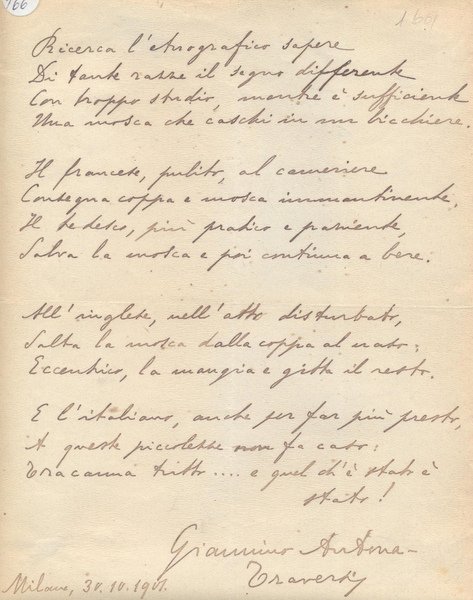 166
160
Ricerca l'etnografico sapere
Di tante razze il segno differente
Con troppo studio, mentre è sufficiente
Una mosca che caschi in un bicchiere.
Il francese, pulito, al cameriere
Consegna coppa e mosca immantinente,
Il tedesco, più pratico e paziente,
Salva la mosca e poi continua a bere.
All'inglese, nell'atto disturbato,
Salta la mosca dalla coppa al naso;
Eccentrico, la mangia e gitta il resto.
E l'italiano, anche per far più presto,
A queste piccolezze non fa caso:
Tracanna tutto.... e quel ch'è stato è
stato!
Giannino Antona-
Traversi
Milano, 30.10.1901.